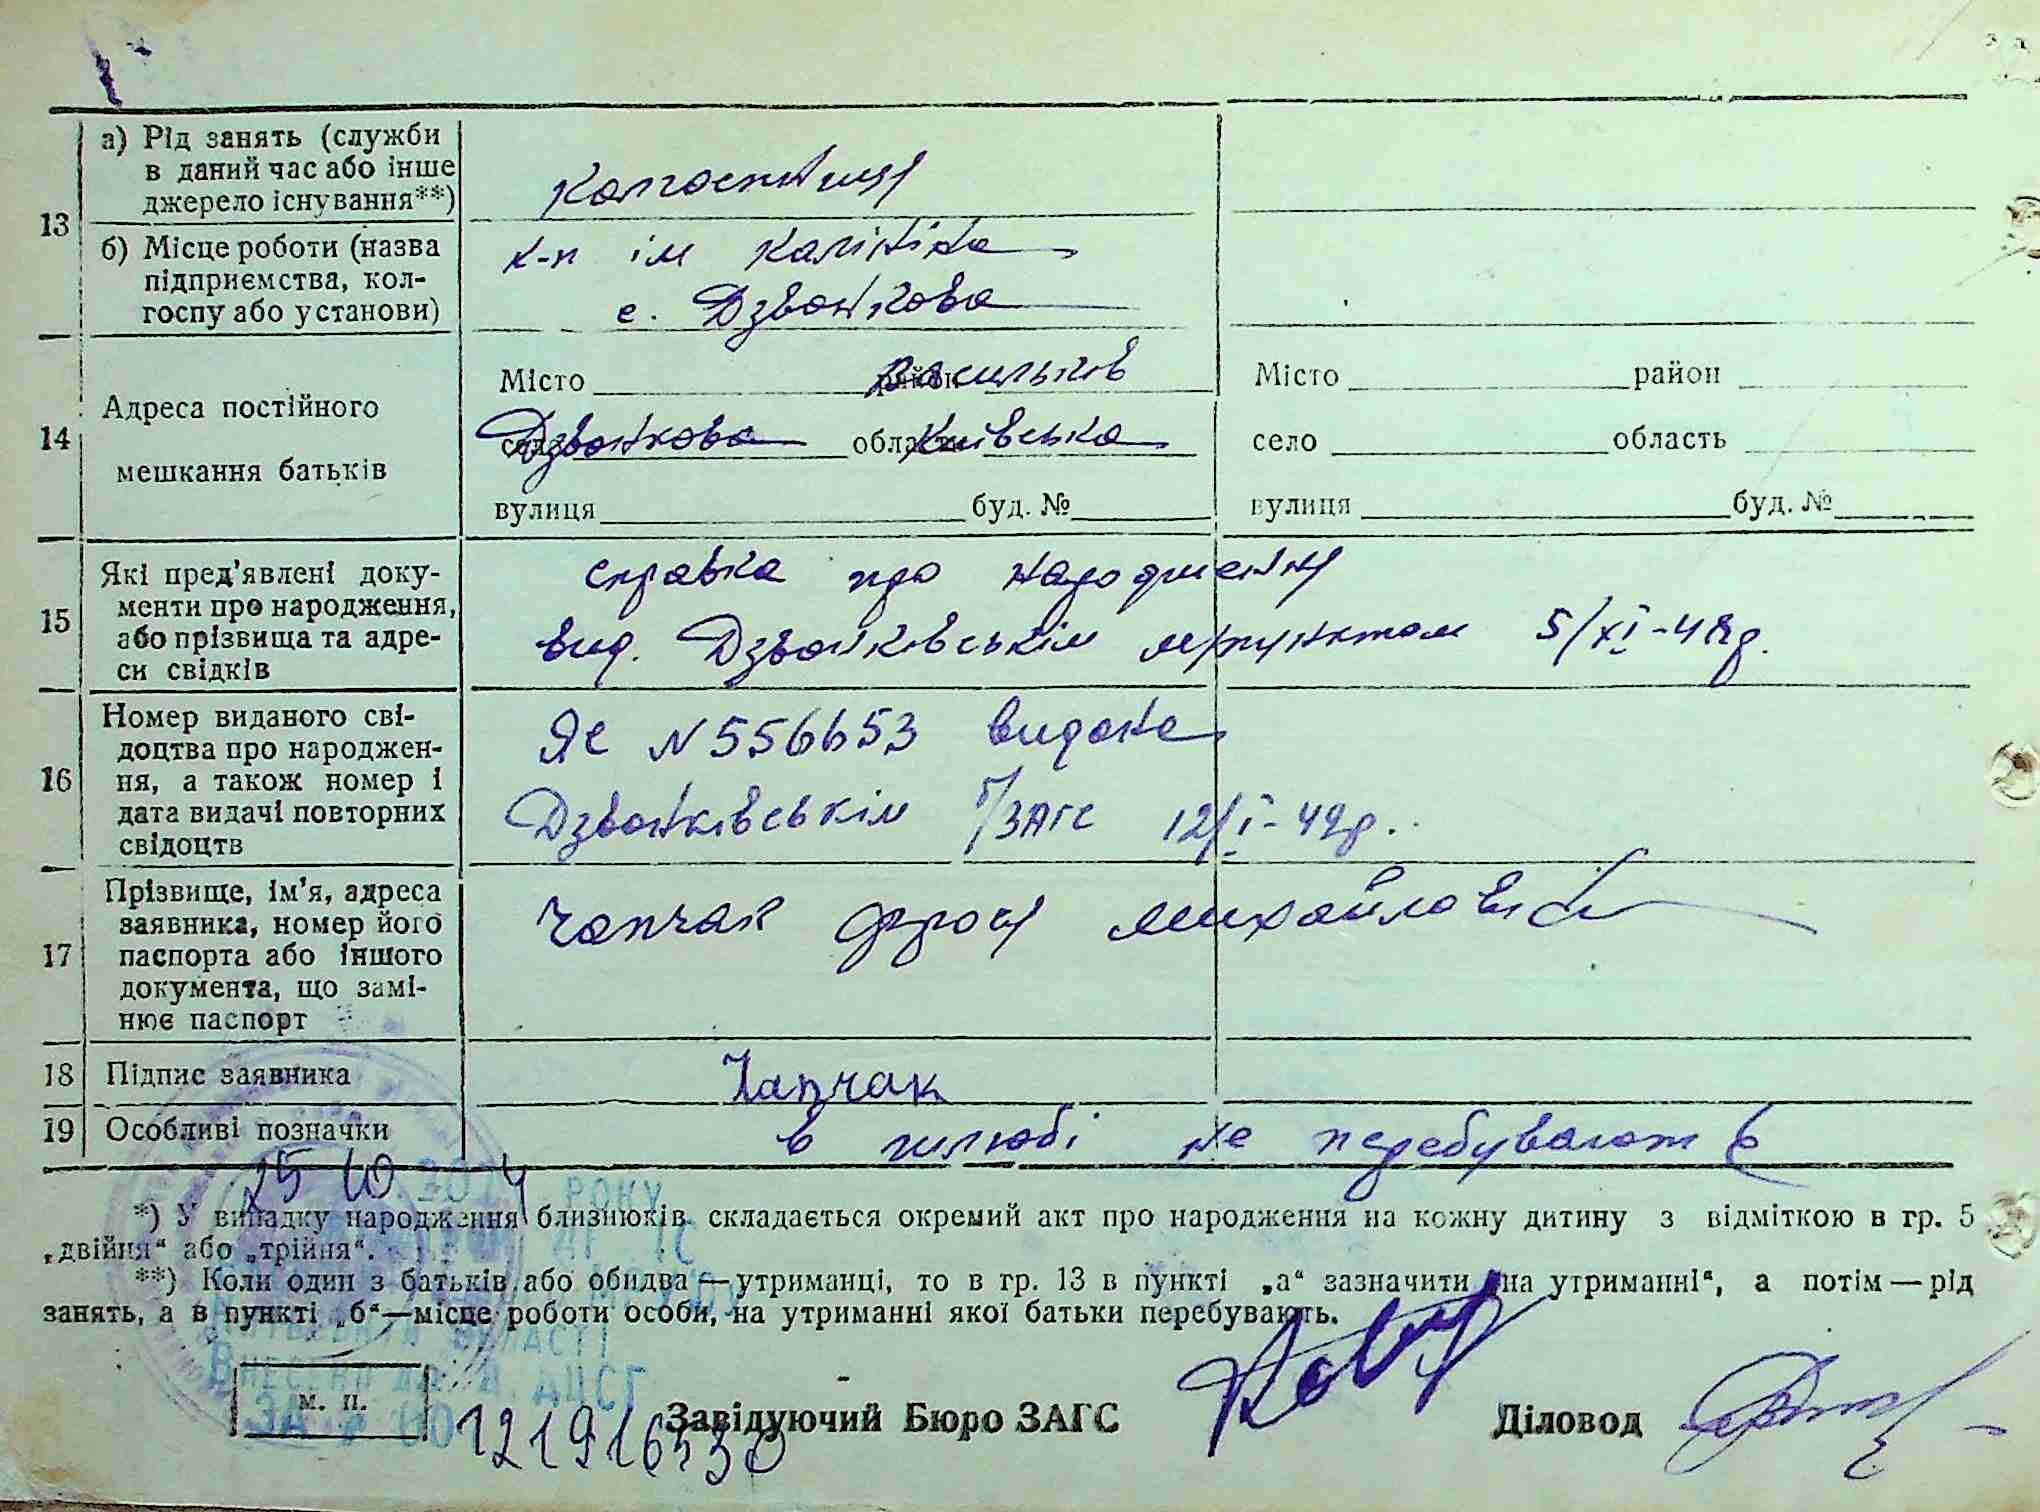 13
а) Рід занять (служби
в даний час або інше
джерело існування**)
колгоспниця
б) Місце роботи (назва
підприємства, кол-
госпу або установи)
к-п ім Калініна
с. Дзвонкова
14
Адреса постійного
мешкання батьків
Місто район Васильків
село Дзвонкова область Київська
вулиця буд. №
Місто район
село область
вулиця буд. №
15
Які пред'явлені доку-
менти про народження,
або прізвища та адре-
си свідків
справка про народження
вид. Дзвонківськім м/пунктом 5/XI-48р.
16
Номер виданого сві-
доцтва про народжен-
ня, а також номер і
дата видачі повторних
свідоцтв
ЯЄ N 556653 видана
Дзвонківськім б/ЗАГС 12/I-49р.
17
Прізвище, ім'я, адреса
заявника, номер його
паспорта або іншого
документа, що замі-
нює паспорт
Чапчак Фрося Михайловна
18
Підпис заявника
Чапчак
19
Особливі позначки
в шлюбі не перебувають
25 10 2014 РОКУ
*) У випадку народження близнюків складається окремий акт про народження на кожну дитину з відміткою в гр. 5
„двійня“ або „трійня“.
**) Коли один з батьків або обидва — утриманці, то в гр. 13 в пункті „а“ зазначити „на утриманні“, а потім — рід
занять, а в пункті „б“—місце роботи особи, на утриманні якої батьки перебувають.
ОБЛАСТІ
ВНЕСЕНО ДО ДРАЦСГ
ЗА № 00121916530
м. п.
Завідуючий Бюро ЗАГС
Діловод